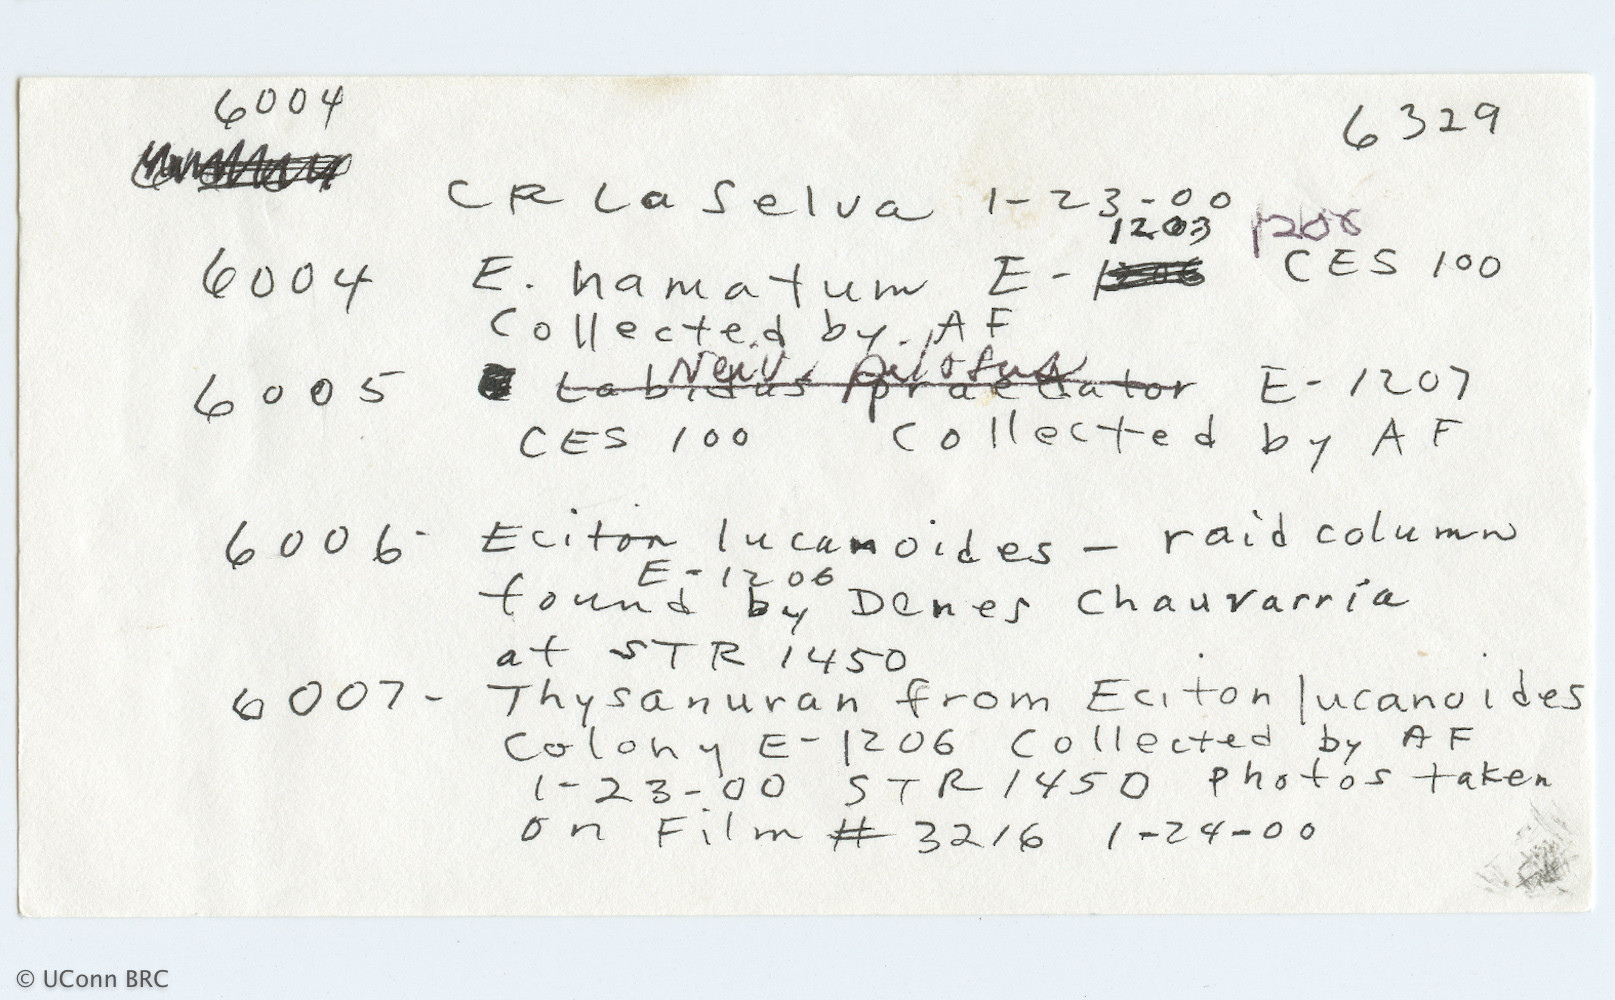 6004
6329
CR La Selva 1-23-00
1203
6004 E. hamatum E- CES 100
Collected by AF
Neiv. pilosus
6005 Labidus praedator E-1207
CES 100 Collected by AF
6006- Eciton lucanoides - raid column
E-1206
found by Denes Chauvarria
at STR 1450
6007- Thysanuran from Eciton lucanoides
Colony E-1206 Collected by AF
1-23-00 STR 1450 Photos taken
on Film # 3216 1-24-00
© UConn BRC